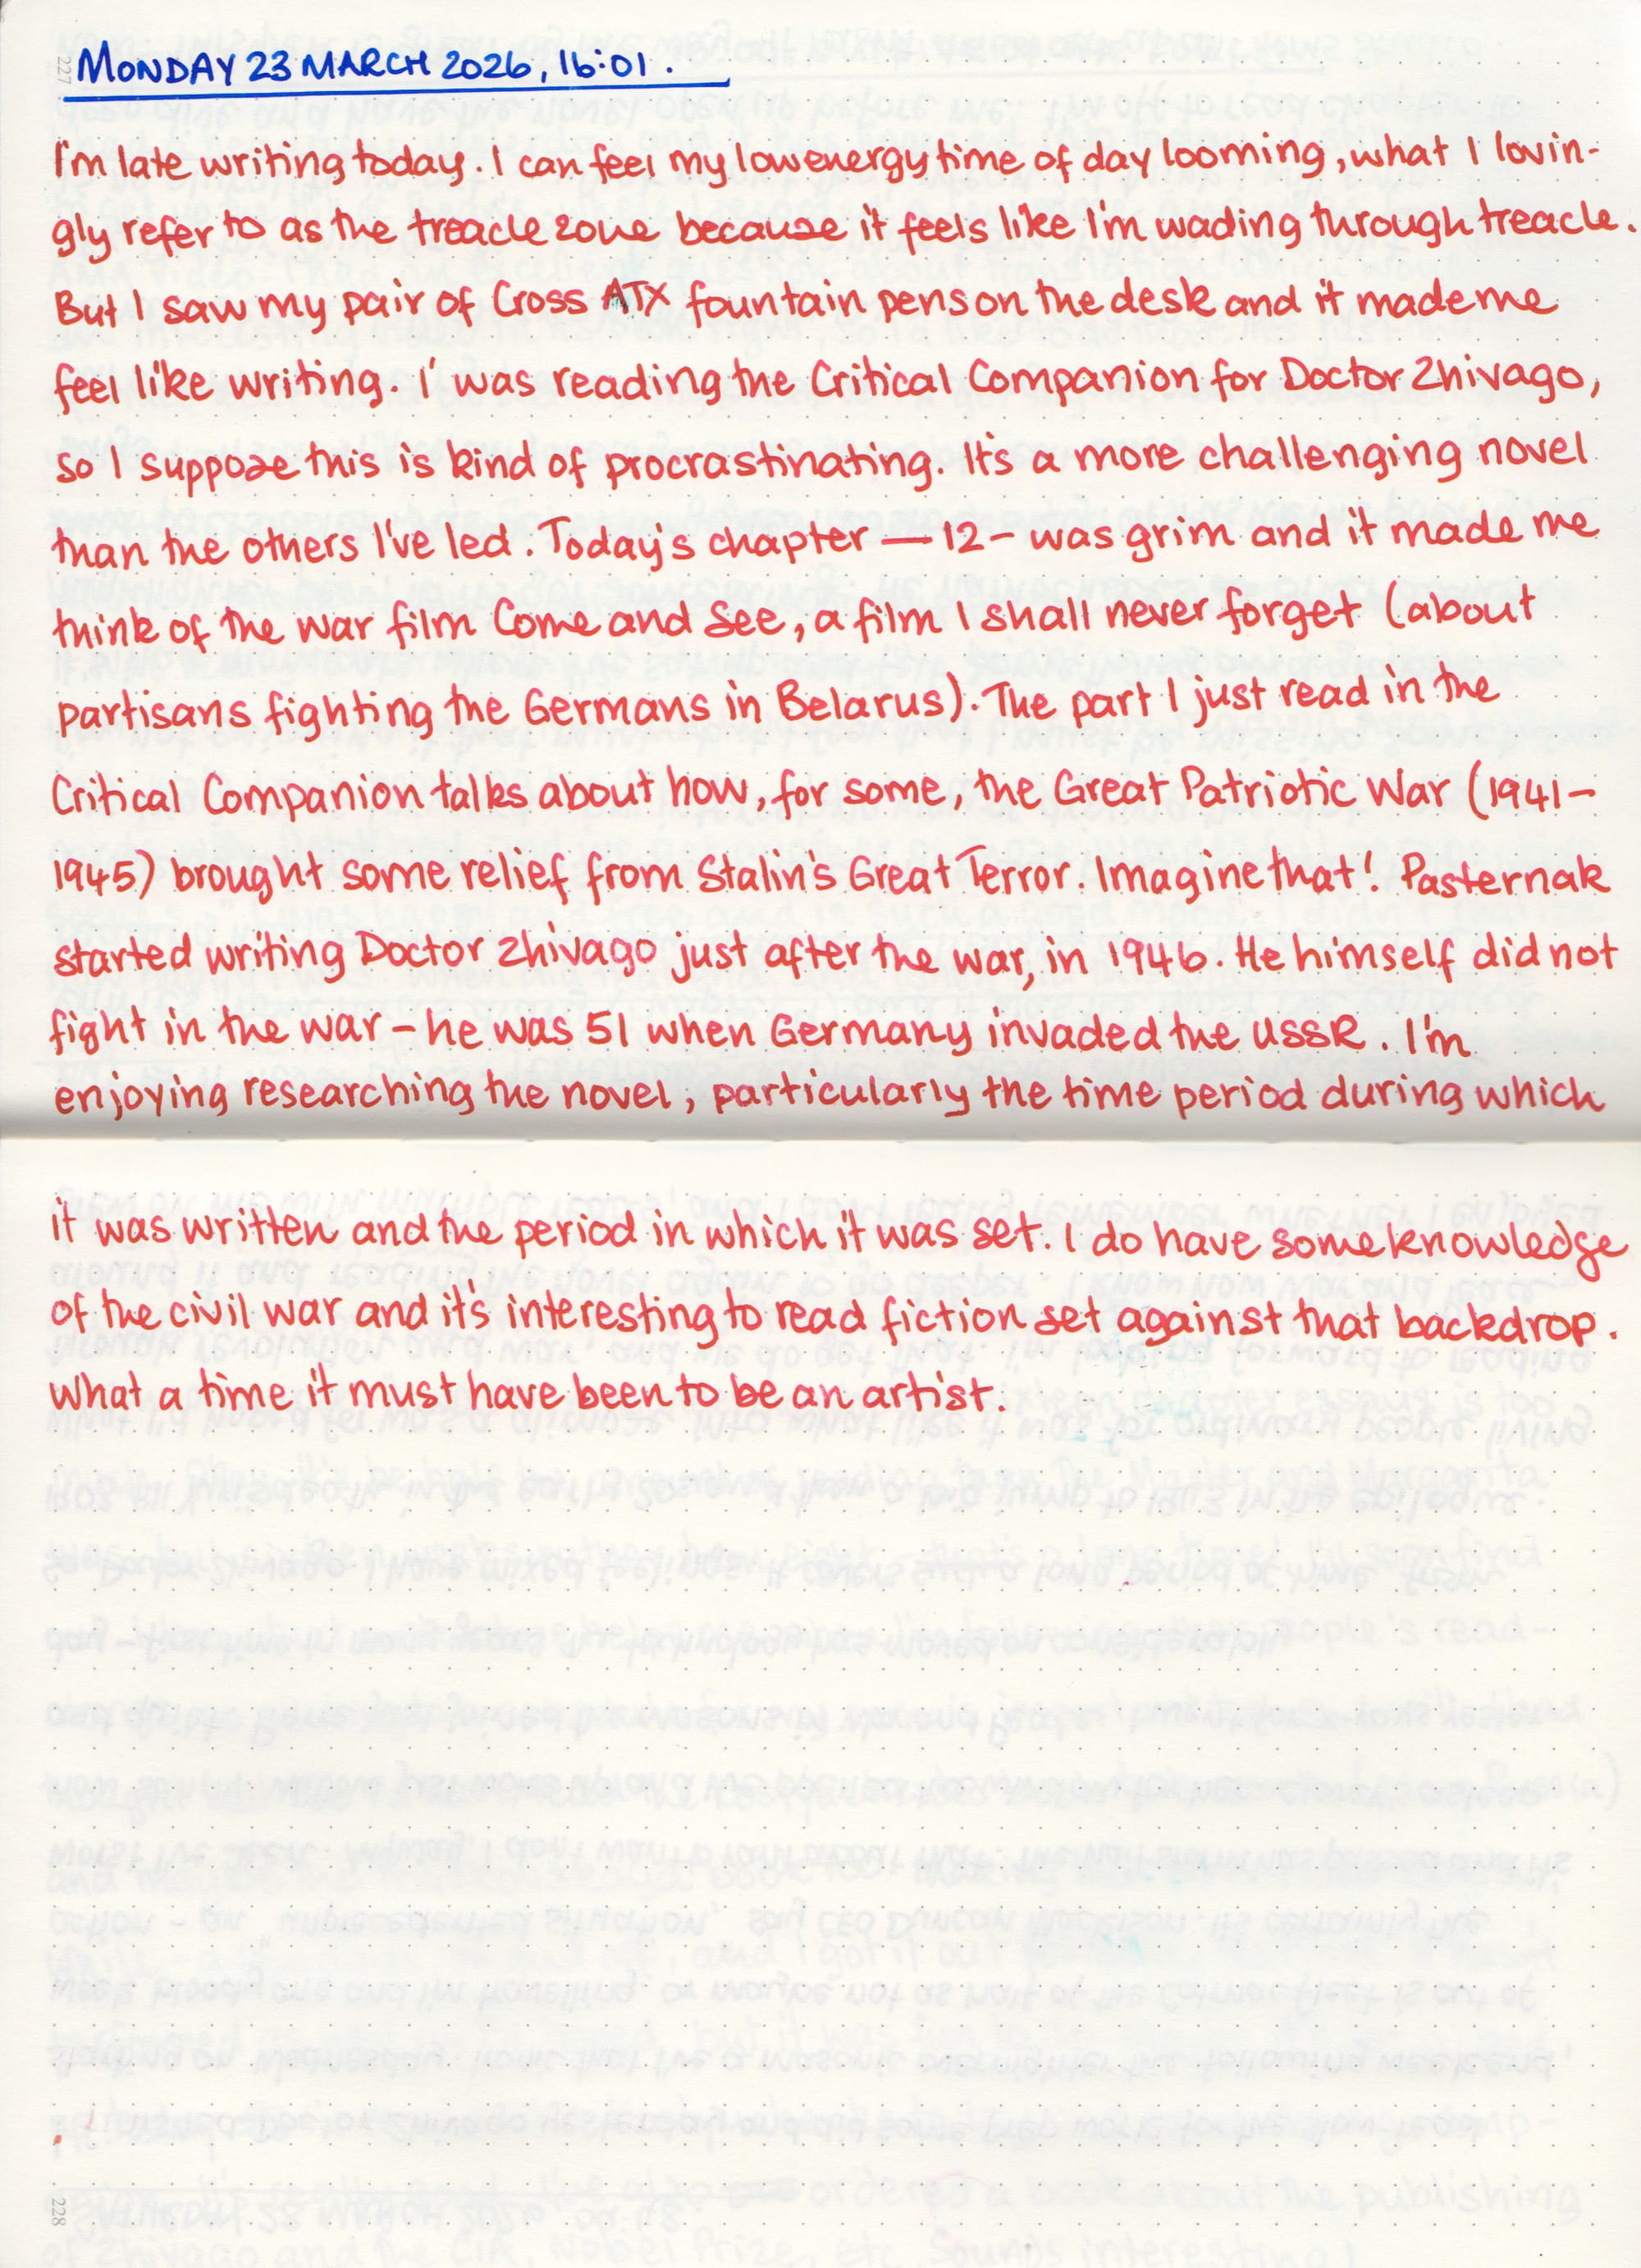 227
MONDAY 23 MARCH 2026, 16:01.
I'm late writing today. I can feel my low energy time of day looming, what I lovin-
gly refer to as the treacle zone because it feels like I'm wading through treacle.
But I saw my pair of Cross ATX fountain pens on the desk and it made me
feel like writing. I was reading the Critical Companion for Doctor Zhivago,
so I suppose this is kind of procrastinating. It's a more challenging novel
than the others I've led. Today's chapter — 12 – was grim and it made me
think of the war film Come and See, a film I shall never forget (about
partisans fighting the Germans in Belarus). The part I just read in the
Critical Companion talks about how, for some, the Great Patriotic War (1941–
1945) brought some relief from Stalin's Great Terror. Imagine that! Pasternak
started writing Doctor Zhivago just after the war, in 1946. He himself did not
fight in the war – he was 51 when Germany invaded the USSR. I'm
enjoying researching the novel, particularly the time period during which
it was written and the period in which it was set. I do have some knowledge
of the civil war and it's interesting to read fiction set against that backdrop.
What a time it must have been to be an artist.
228